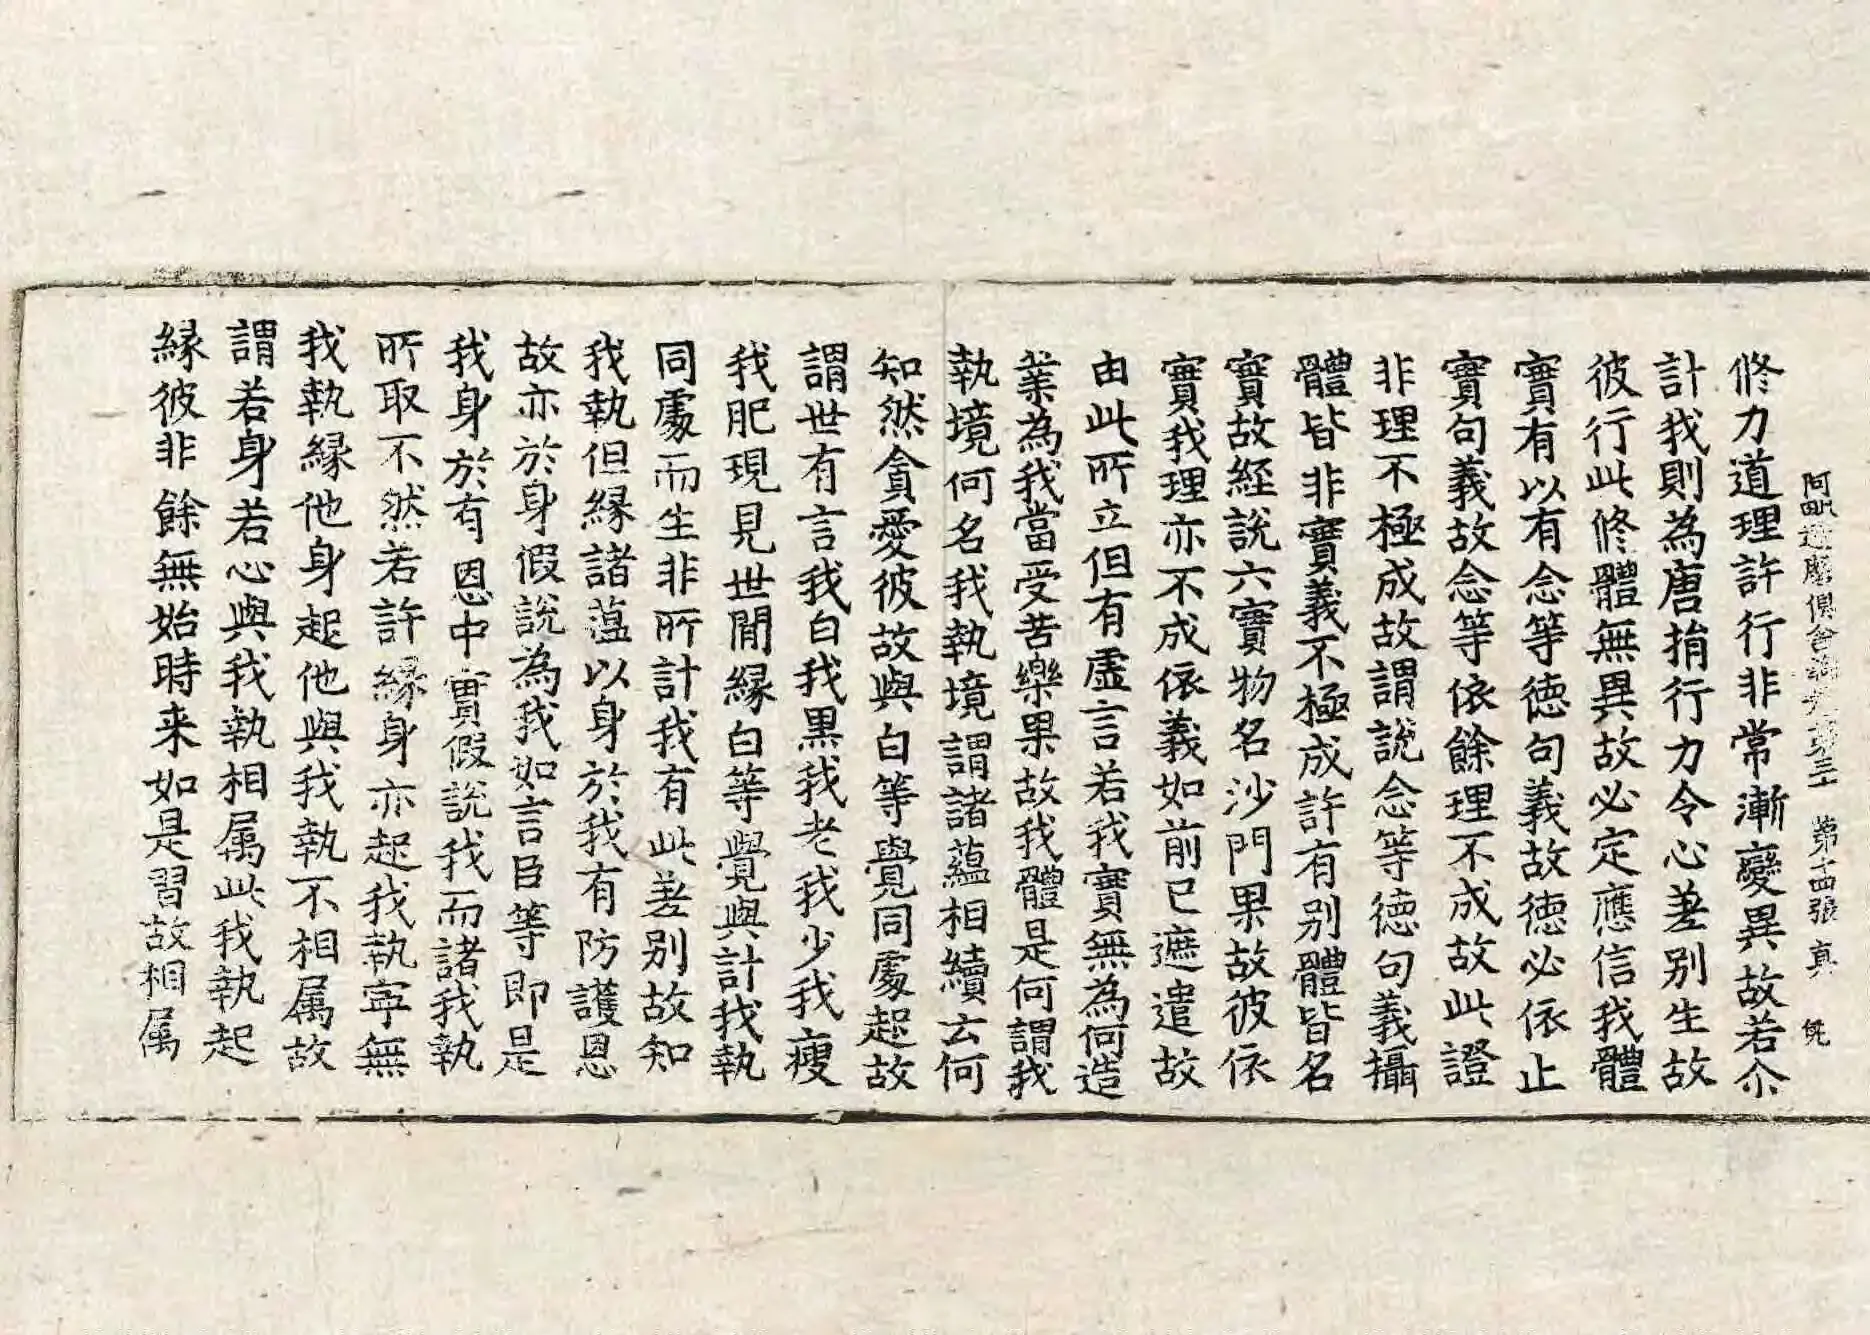 阿毗達磨俱舍論卷第三十　第十四張　真　
修力道理許行非常漸變異故若尒
計我則為唐捐行力令心差別生故
彼行此修體無異故必定應信我體
實有以有念等徳句義故徳必依止
實句義故念等依餘理不成故此證
非理不極成故謂說念等徳句義攝
體皆非實義不極成許有別體皆名
實故經說六實物名沙門果故彼依
實我理亦不成依義如前已遮遣故
由此所立但有虛言若我實無為何造
業為我當受苦樂果故我體是何謂我
執境何名我執境謂諸蘊相續云何
知然貪愛彼故與白等覺同處起故
謂世有言我白我黑我老我少我瘦
我肥現見世間緣白等覺與計我執
同處而生非所計我有此差別故知
我執但緣諸蘊以身於我有防護恩
故亦於身假說為我如言臣等即是
我身於有恩中實假說我而諸我執
所取不然若許緣身亦起我執寧無
我執緣他身起他與我執不相属故
謂若身若心與我執相属此我執起
緣彼非餘無始時来如是習故相属